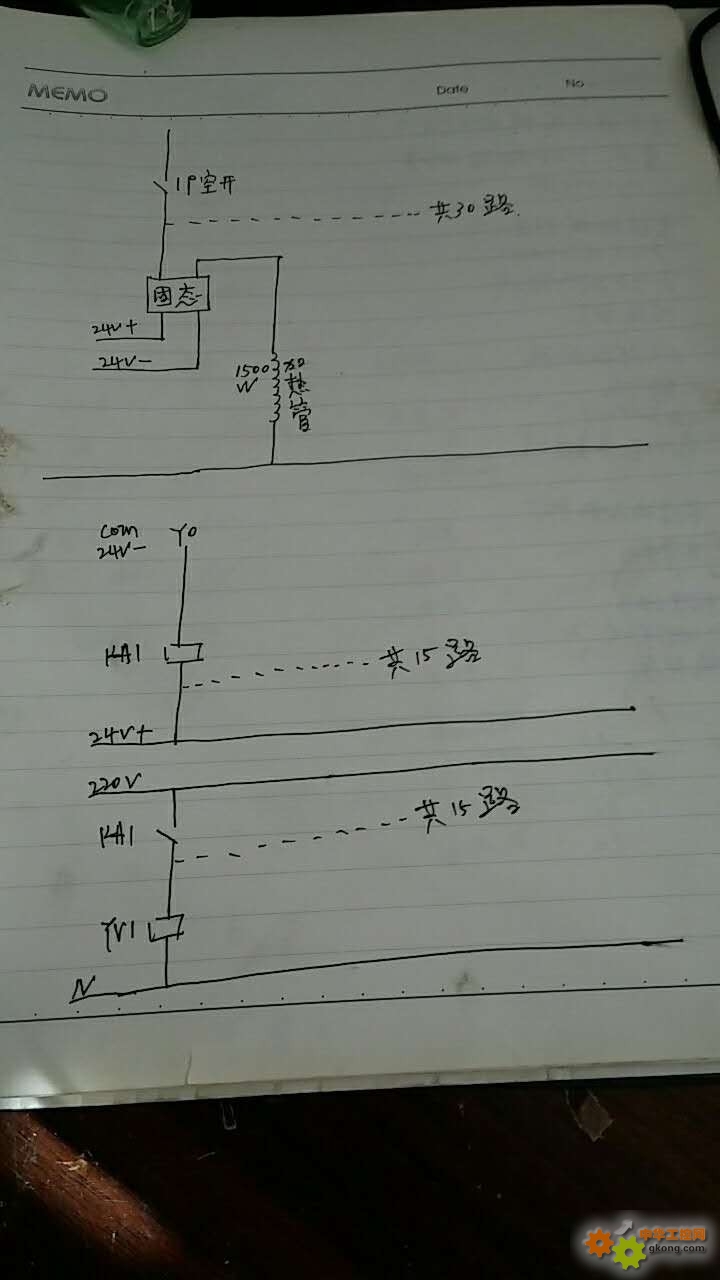 MEMO
Date
No
1P空开
共30路
固态
24V+
24V-
1500
W
加热管
com
24V-
Y0
KA1
共15路
24V+
220V
KA1
共15路
YV1
N
中华工控网
gkong.com